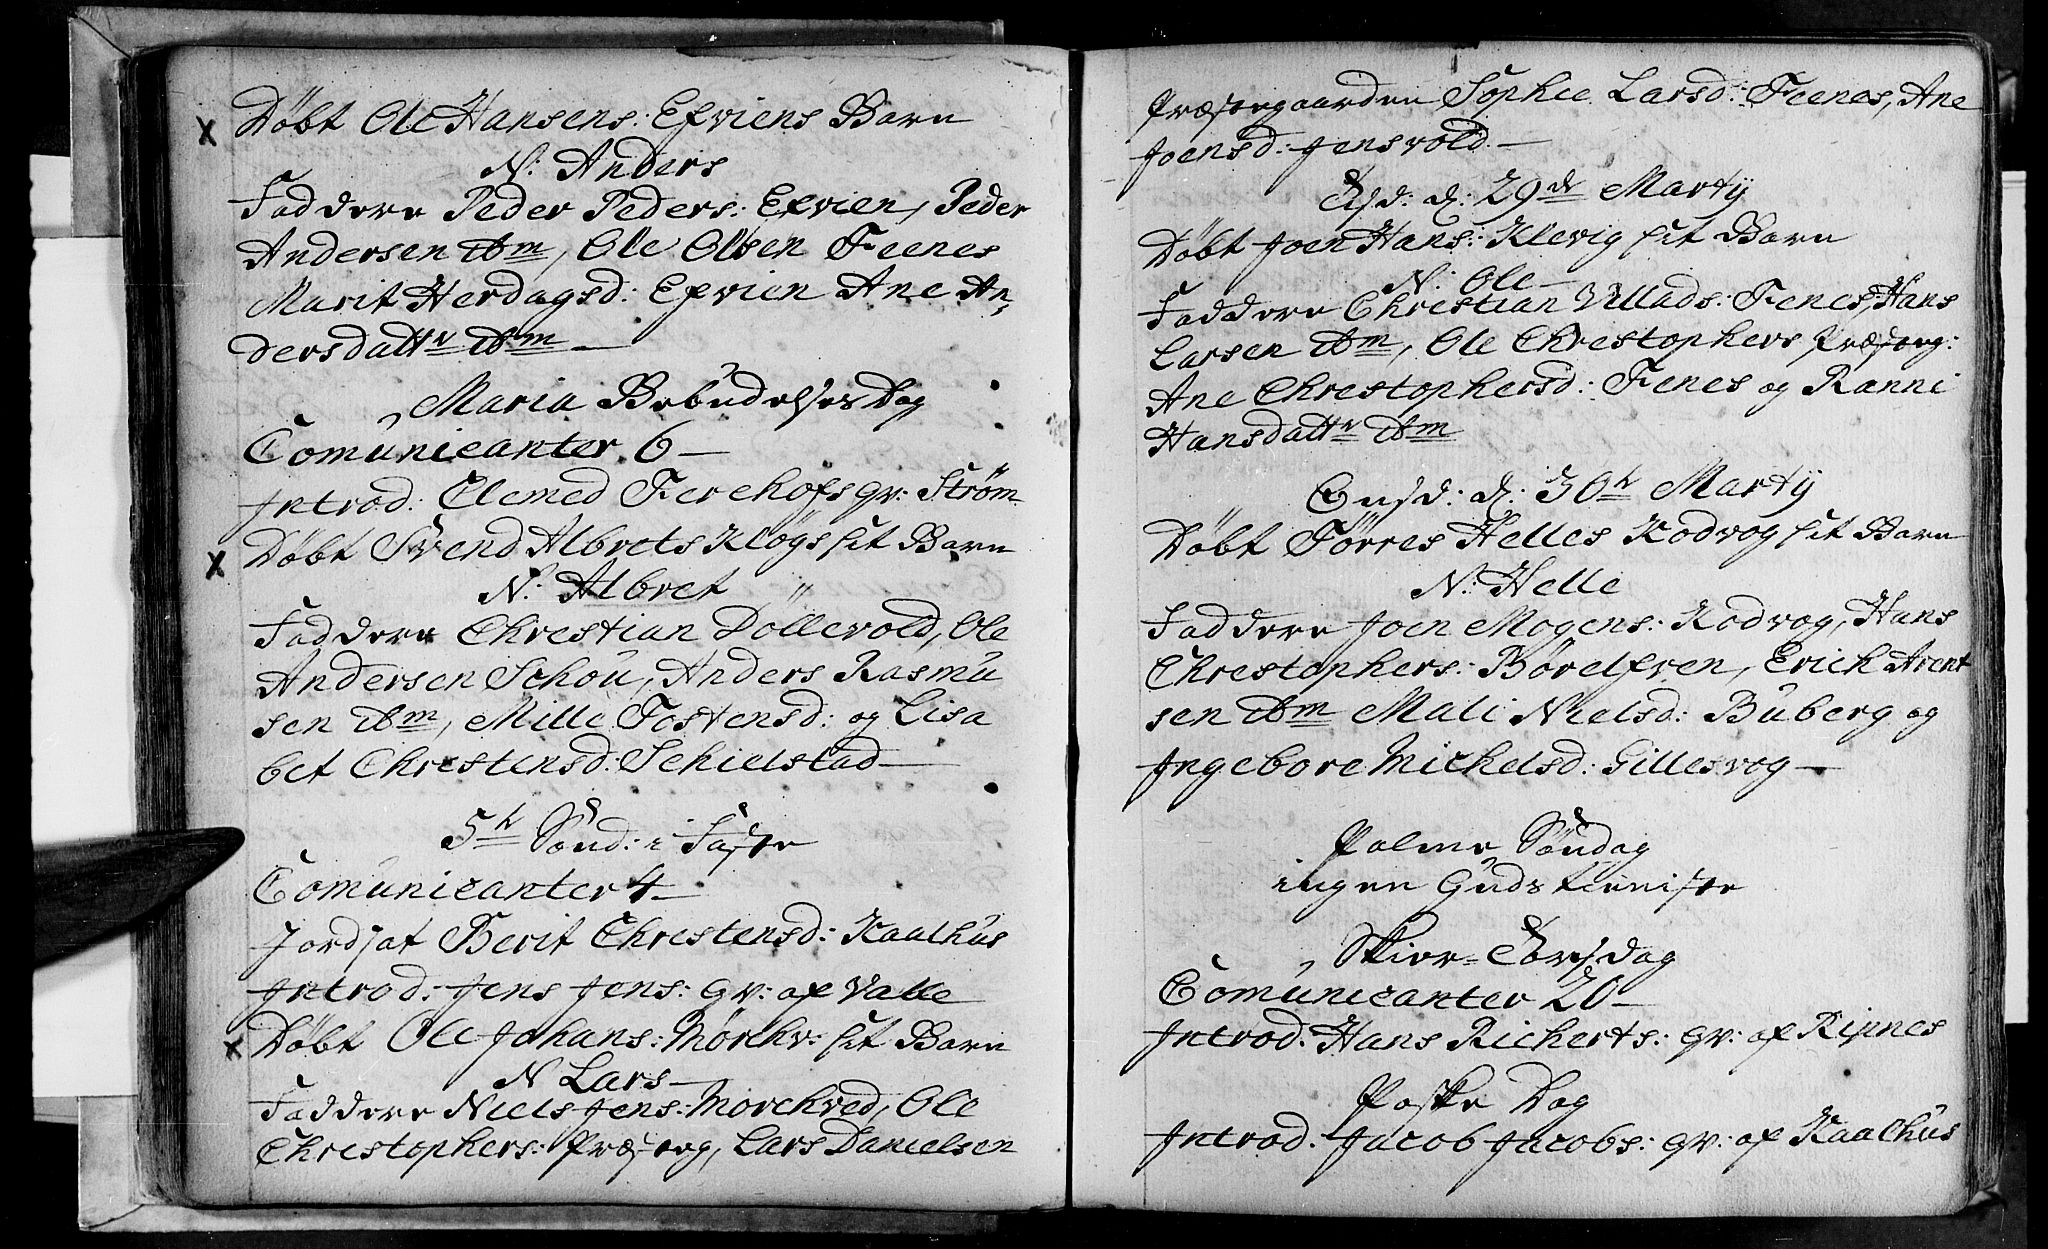 Døbt Ole Hansens Efviens Barn
N: Anders
Faddere Peder Peders: Efvien, Peder
Andersen ibm, Ole Olsen Feenes
Marit Herdagsd: Efvien Ane An-
dersdattr ibm —
Maria Bebudelses Dag
Comunicanter 6 —
Introd: Elemed Ferehofs qv: Strøm
Døbt Svend Albrets Kløgs sit Barn
N: Albret
Faddere Chrestian Dollevold, Ole
Andersen Schou, Anders Rasmu
sen ibm, Mille Fostensd: og Lisa
bet Chrestensd: Schielstad —
5te Sønd: i Faste
Comunicanter 4 —
Jordsat Berit Chrestensd: Kaalhus
Introd: Jens Jens: qv: af Valle
Døbt Ole Johans: Mørchv: sit Barn
N Lars —
Faddere Niels Jens: Morchved, Ole
Chrestophers: Præsteg, Lars Danielsen
Præstegaarden Sophie Larsd: Feenes, Ane
Joensd: Jensvold. —
d: 29de Martij
Døbt Joen Hans: Klevig sit Barn
N: Ole —
Faddere Chrestian Villads: Fenes, Hans
Larsen ibm, Ole Chrestophers Præsteg:
Ane Chrestophersd: Fenes og Ranni
Hansdattr ibm
Onsd: d: 30te Martij
Døbt Tørres Helles Kodvog sit Barn
N: Helle
Faddere Joen Mogens: Kodvog, Hans
Chrestophers: Børelfven, Erich Arent
sen ibm Mali Nielsd: Buberg og
Ingebore Michelsd: Gillesvog —
Palme Søndag
ingen Gudstieniste
Skier-Torsdag
Comunicanter 20 —
Introd: Hans Richerts: qv: af Ripnes
Paaske Dag
Introd: Jacob Jacobs: qv: af Kaalhus